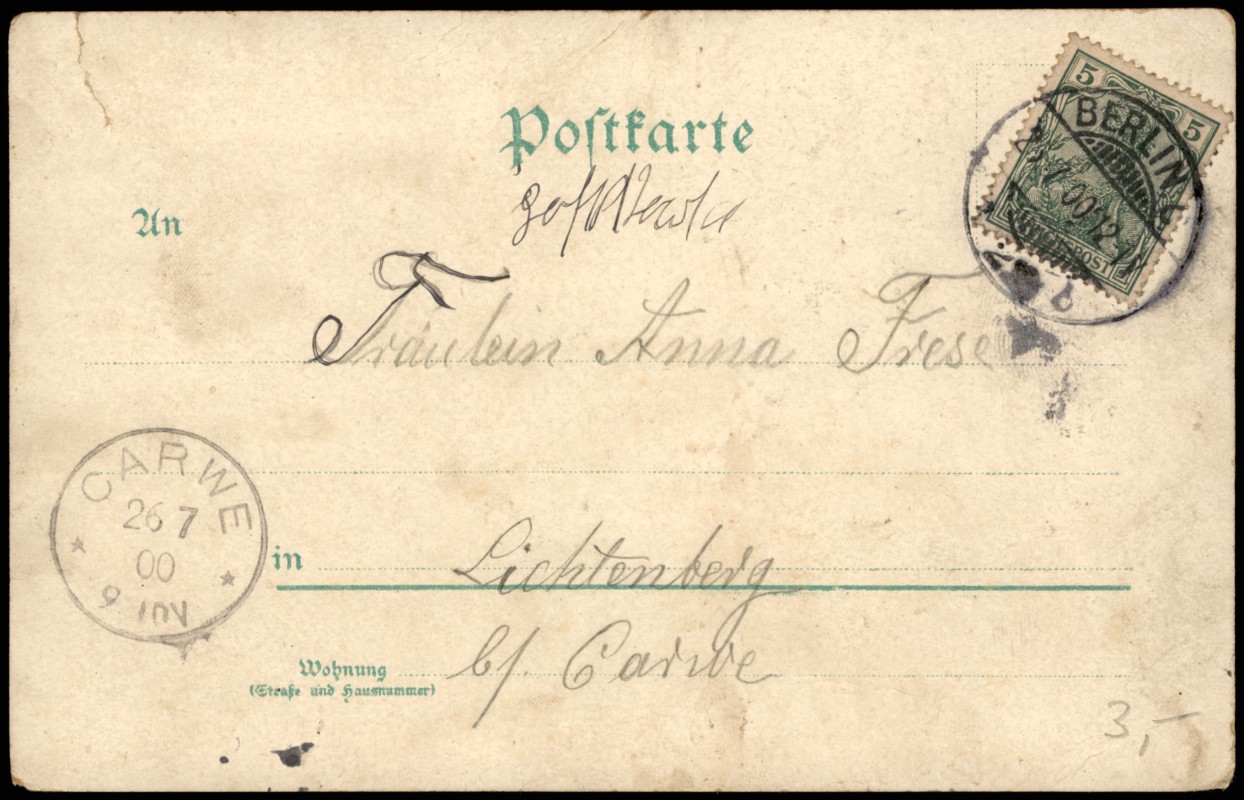 Postkarte
An
Fräulein Anna Frese
in Lichtenberg
b/. Carwe
Wohnung
(Straße und Hausnummer)
5 5
BERLIN
7.00 12
CARWE
26 7
00
9 10V
3,-